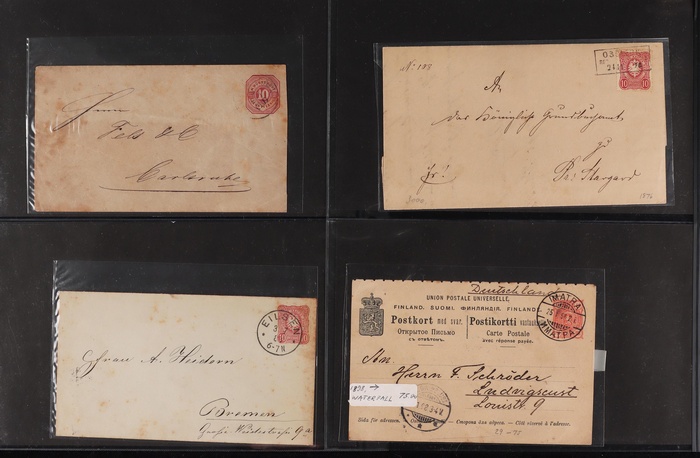 10
Herrn
Fels & C
Carlsruhe
No: 193
10 10
An
das Königliche Grundbuchamt
zu
fr!
Pr: Stargard
1876
EILSEN
6-7N
Frau A. Heidorn
Bremen
Große Weidestraße 9a
Deutschland
UNION POSTALE UNIVERSELLE,
FINLAND. SUOMI. ФИНЛЯНДІЯ.
Postkort med svar.
Postikortti
Открытое Письмо
Carte Postale
съ отвѣтомъ.
avec réponse payée.
IMATRA
ИМАТРА
An
Herrn F. Schröder
Ludwigslust
Louisstr. 9
1898, →
WATERFALL 75.00
Sida för adressen. Côté réservé à l'adresse.